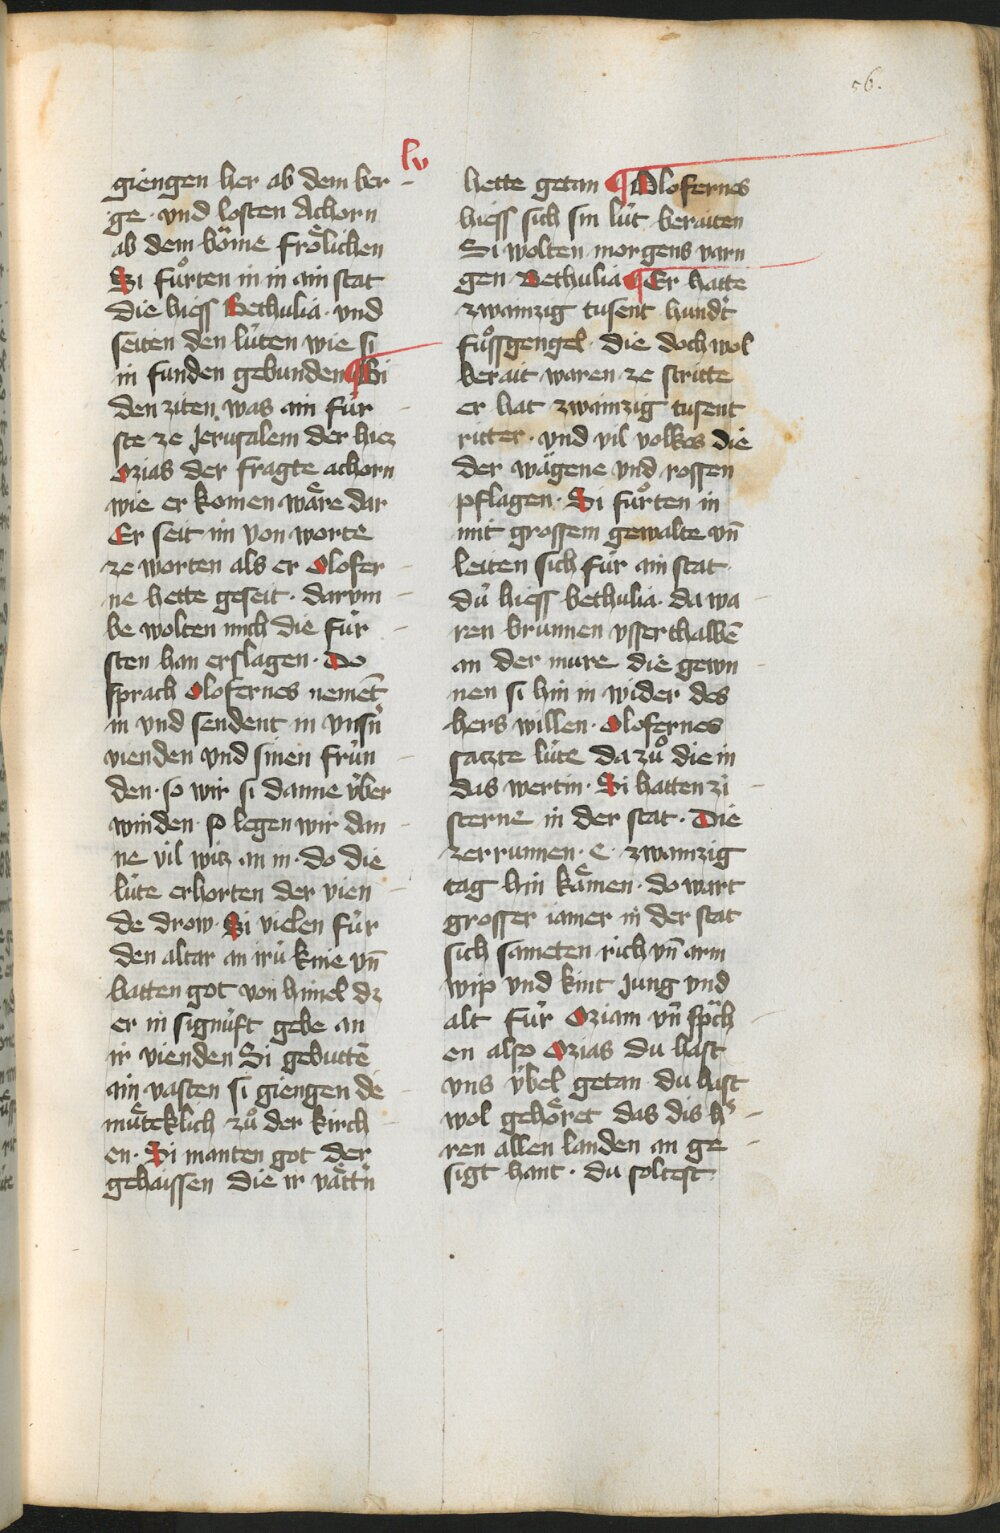 56.
lv
giengen her ab dem ber
ge · vnd losten Achorn
ab dem bo̊me frölichen
Si fůrten in in ain stat
die hiess Bethulia · vnd
seiten den lúten wie si
in funden gebunden ¶ Bi
den ziten was ain fúr
ste ze Jerusalem der hiez
Ozias der fragte achorn
wie er komen wäre dar
Er seit im von worte
ze worten als er Olofer
ne hette geseit · darvm
be wolten mich die fúr
sten han erslagen · Do
sprach Olofernes nemēt
in vnd sendent in vnsn̄
vienden vnd sinen frún
den · so wir si danne v́ber
winden · so legen wir dan
ne vil witz an in · do die
lúte erhorten der vien
de drow · Si vielen fúr
den altar an irú knie vn̄
batten got von himel dz
er in signúft gebe an
ir vienden Si gebuttē
ain vasten si giengen de
mu̇teklich zů der kirch
en · Si manten got der
gehaissen die ir vättn̄
hette getan ¶ Olofernes
hiess sich sin lút beraiten
Si wolten morgens varn
gen Bethulia ¶ Er hatte
zwainzig tusent hundt̄
fůssgengel · die doch wol
berait waren ze stritte
er hat zwainzig tusent
ritter · vnd vil volkes die
der wägene vnd rossen
pflagen · Si fůrten in
mit grossem gewalte vn̄
leiten sich fúr ain stat
dú hiess bethulia · da wa
ren brunnen vsserthalbē
an der mure die gewn
nen si hin in wider des
hers willen · Olofernes
satzte lúte da zů die in
das wertin · Si hatten zi
sterne in der stat · Die
zerrunnen · e · zwainzig
tag hin kämen · do wart
grosser iamer in der stat
sich sameten rich vn̄ arm
wip vnd kint jung vnd
alt fúr Oziam vn̄ sp̄ch
en also Ozias du hast
vns v́bel getan du hast
wol gehöret das dis h̄
ren allen landen an ge
sigt hant · du soltest